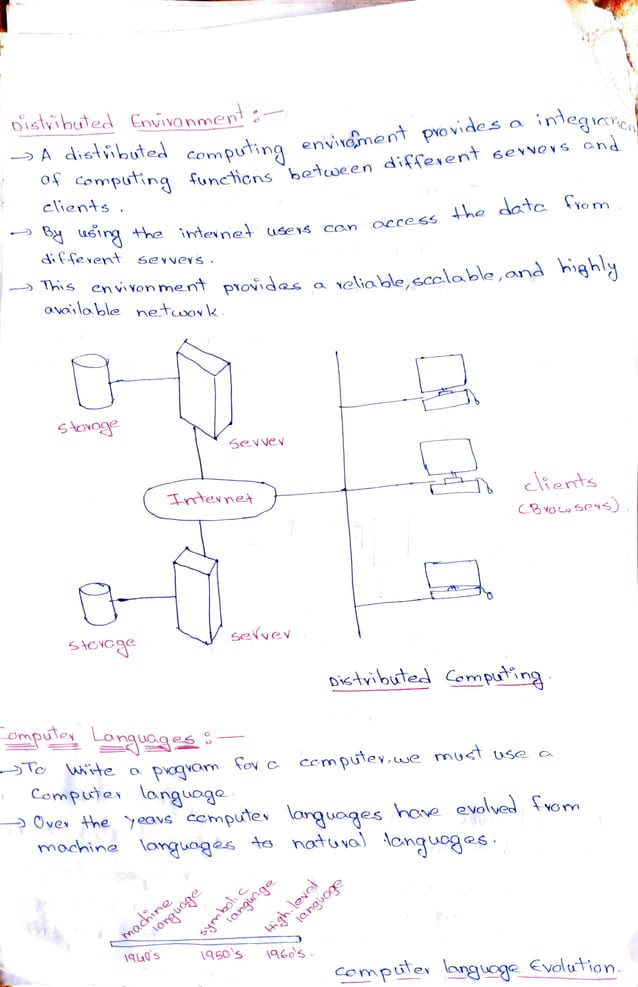 Distributed Environment :-
→ A distributed computing environment provides a integration
of computing functions between different servers and
clients.
→ By using the internet users can access the data from
different servers.
→ This environment provides a reliable, scalable, and highly
available network.
storage
server
Internet
clients
(Browsers).
storage
server
Distributed Computing.
Computer Languages :-
→ To write a program for a computer, we must use a
Computer language.
→ Over the years computer languages have evolved from
machine languages to natural languages.
machine
language
symbolic
language
High-level
language
1940's 1950's 1960's.
Computer language Evolution.